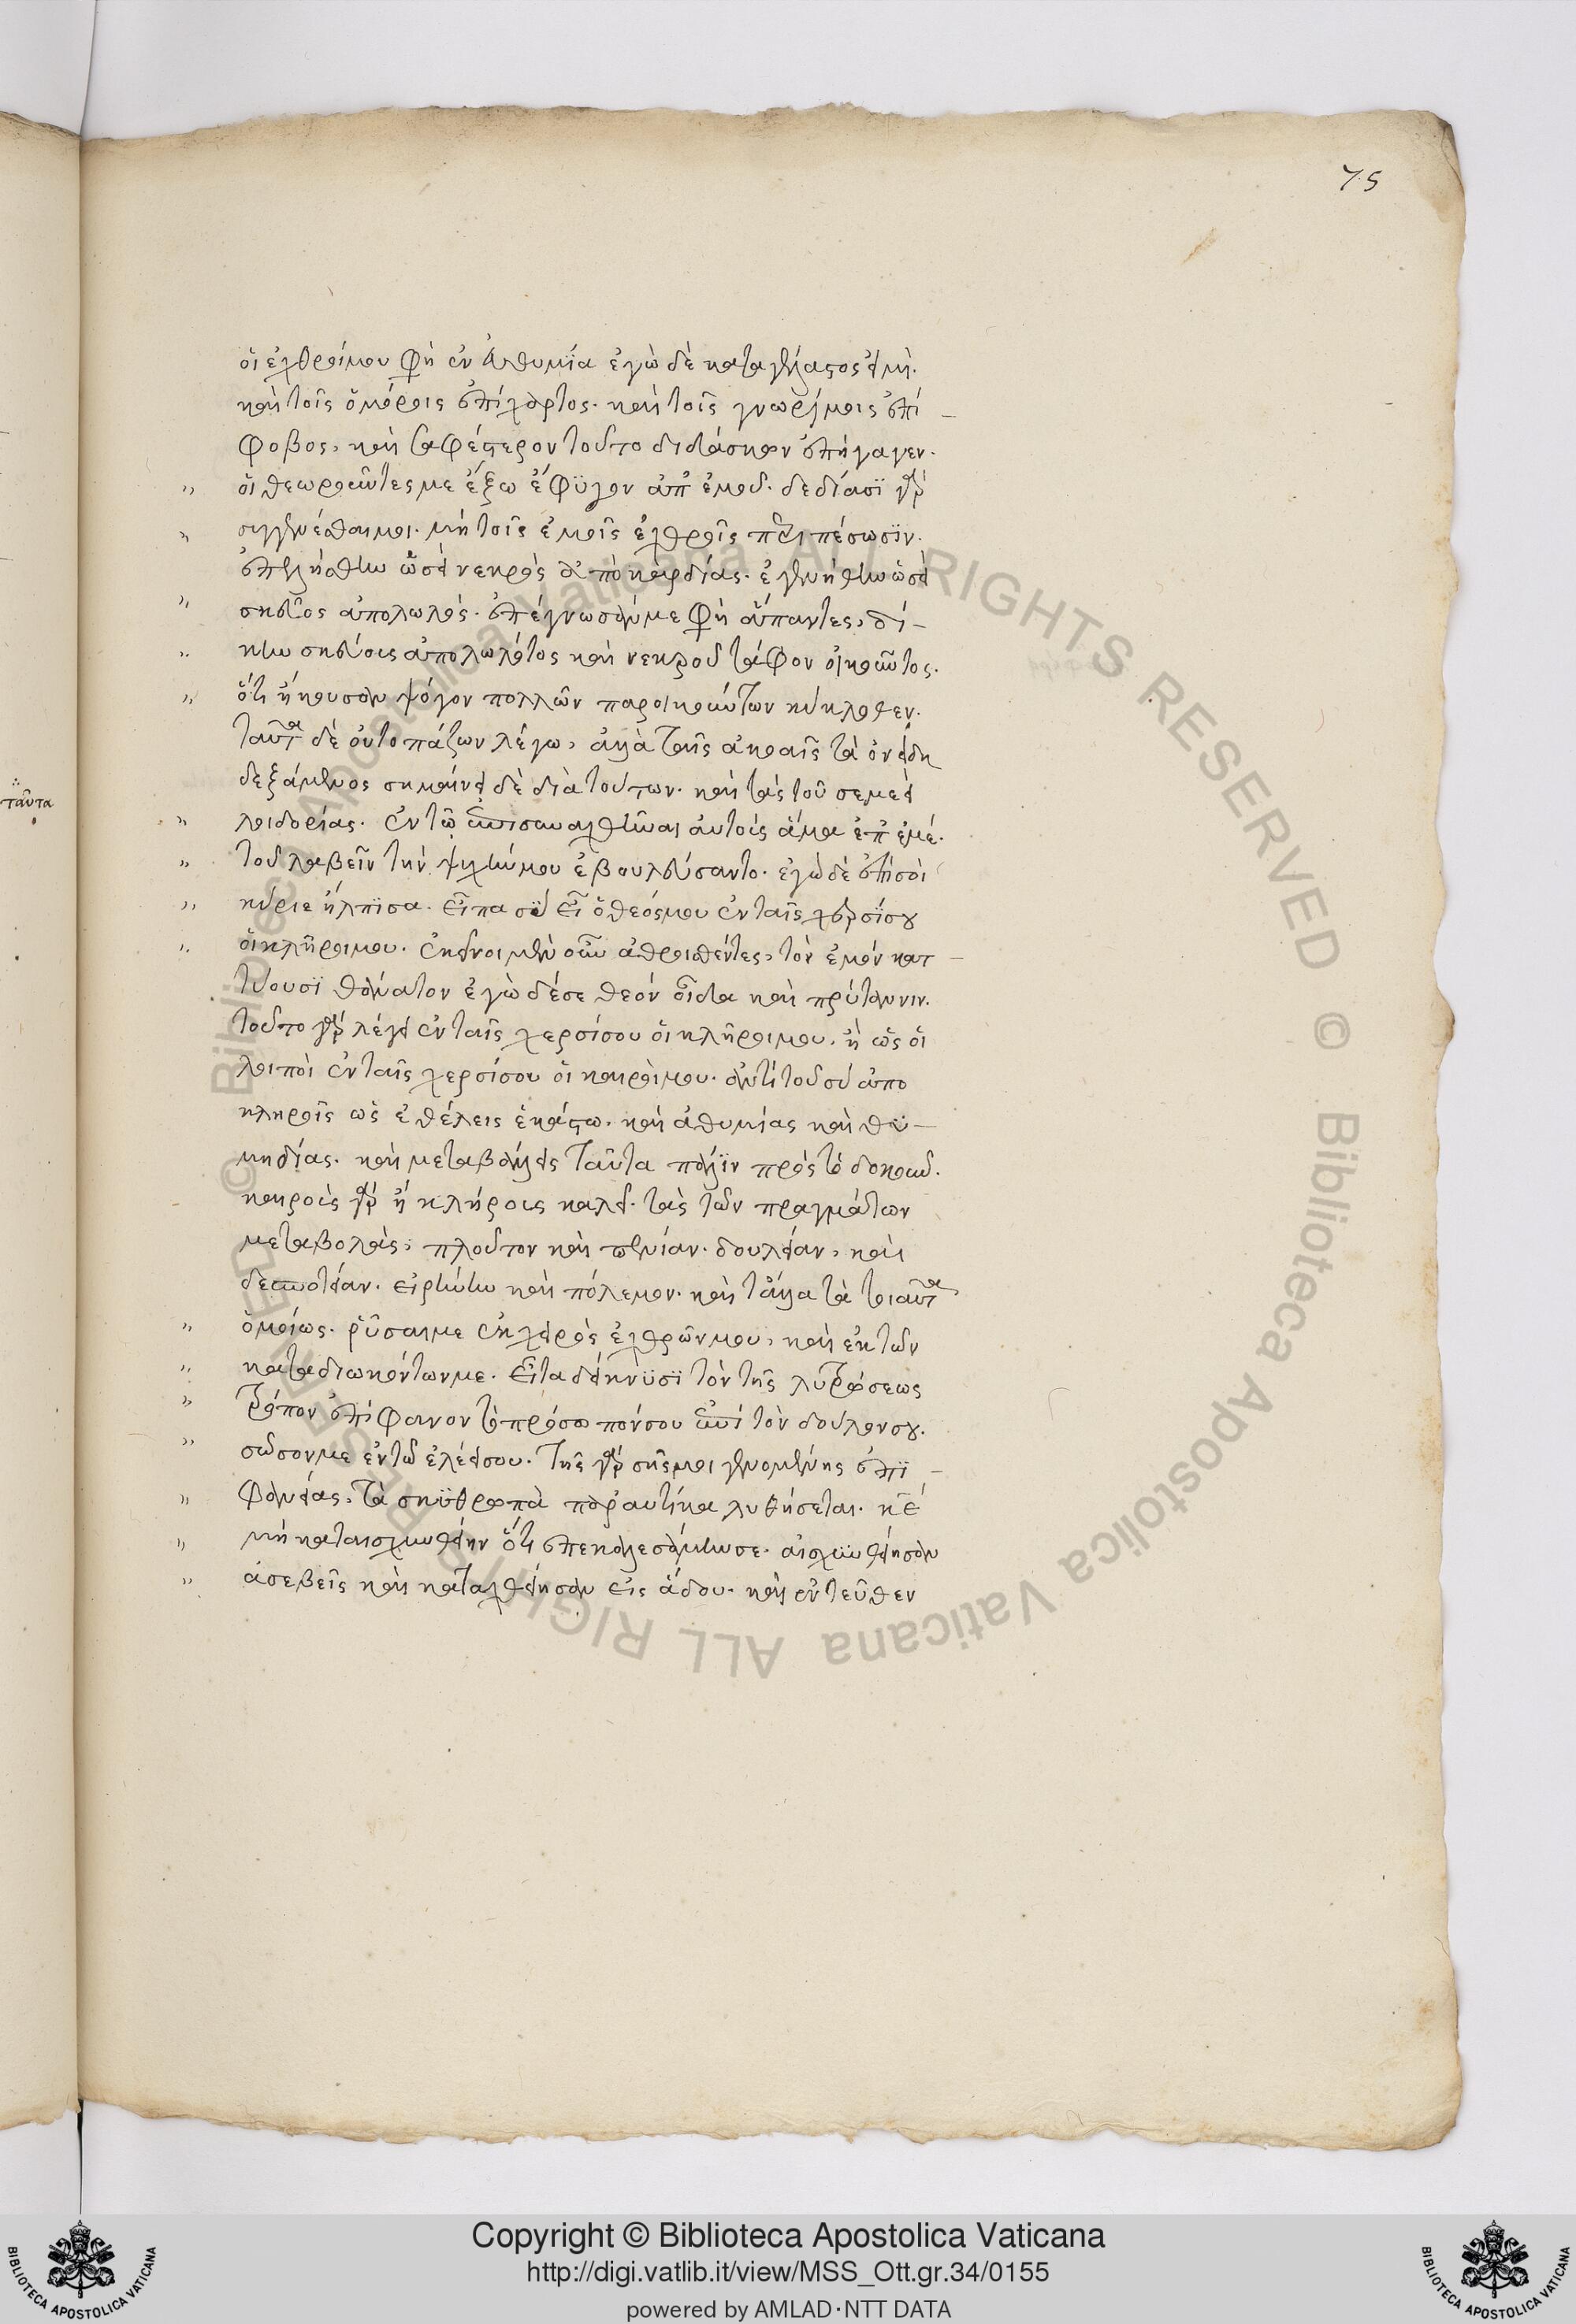 75
οἱ ἐχθροί μου φὴ ἐν ἀθυμία ἐγὼ δὲ καταγέλαστος εἰμὶ.
καὶ τοῖς ὁμόροις ἐπίχαρτος. καὶ τοῖς γνωρίμοις ἐπί-
φοβος, καὶ σαφέστερον τοῦτο διδάσκων ἐπήγαγεν.
οἱ θεωροῦντες με ἔξω ἔφυγον ἀπ' ἐμοῦ. δεδίασϊ γὰρ
συγγενέσθαι μοι. μὴ τοῖς ἐμοῖς ἐχθροῖς περιπέσωσϊν.
ἐπελήσθην ὡσεὶ νεκρὸς ἀπὸ καρδίας. ἐγενήθην ὡσεὶ
σκεῦος ἀπολωλός. ἐπέγνωσάν με φὴ ἅπαντες, δί-
κην σκεύους ἀπολωλότος καὶ νεκροῦ τάφον οἰκοῦντος.
ὅτι ἤκουσαν ψόγον πολλῶν παροικούντων κύκλοθεν.
ταῦτα δὲ οὐ τοπάζων λέγω, ἀλλὰ ταῖς ἀκοαῖς τὰ ὀνείδη
δεξάμενος σημαίνει δὲ διὰ τούτων. καὶ τὰς τοῦ σεμεεὶ
ταῦτα
λοιδορίας. ἐν τῷ ἐπισυναχθῆναι αὐτοὺς ἅμα ἐπ' ἐμέ.
τοῦ λαβεῖν τὴν ψυχήν μου ἐβουλεύσαντο. ἐγὼ δὲ ἐπὶ σοὶ
κύριε ἤλπϊσα. εἶπα σὺ εἶ ὁ θεός μου ἐν ταῖς χερσί σου
οἱ κλῆροι μου. ἐκεῖνοι μὲν οὖν ἀθροισθέντες, τὸν ἐμὸν κατ-
τύουσϊ θάνατον ἐγὼ δέ σε θεόν οἶδα καὶ πρύτανιν.
τοῦτο γὰρ λέγει ἐν ταῖς χερσί σου οἱ κλῆροι μου. ἢ ὡς οἱ
λοιποὶ ἐν ταῖς χερσί σου οἱ καιροὶ μου. ἀντὶ τοῦ σὺ ἀπο
κληροῖς ὡς ἐθέλεις ἑκάστω. καὶ ἀθυμίας καὶ θυ-
μηδίας. καὶ μεταβάλλεις ταῦτα πάλϊν πρὸς τὸ δοκοῦν.
καιροὺς γὰρ ἢ κλήρους καλεῖ. τὰς τῶν πραγμάτων
μεταβολὰς, πλοῦτον καὶ πενίαν. δουλείαν, καὶ
δεσποτείαν. εἰρήνην καὶ πόλεμον. καὶ τἄλλα τὰ τοιαῦτα
ὁμοίως. ῥῦσαι με ἐκ χειρὸς ἐχθρῶν μου, καὶ ἐκ τῶν
καταδιωκόντων με. εἶτα δείκνυσϊ τὸν τῆς λυτρώσεως
τρόπον ἐπίφανον τὸ πρόσωπόν σου ἐπὶ τὸν δοῦλον σου.
σῶσον με ἐν τῶ ἐλέει σου. τῆς γὰρ σῆς μοι γενομένης ἐπϊ-
φανείας, τὰ σκυθρωπὰ παραυτίκα λυθήσεται. κύριε
μὴ καταισχυνθείην ὅτι ἐπεκαλεσάμην σε. αἰσχυνθείησαν
ἀσεβεῖς καὶ καταχθείησαν εἰς ἅδου. καὶ ἐντεῦθεν
Copyright © Biblioteca Apostolica Vaticana
http://digi.vatlib.it/view/MSS_Ott.gr.34/0155
powered by AMLAD·NTT DATA
BIBLIOTECA APOSTOLICA VATICANA
BIBLIOTECA APOSTOLICA VATICANA
© Biblioteca Apostolica Vaticana ALL RIGHTS RESERVED © Biblioteca Apostolica Vaticana ALL RIGHTS RESERVED